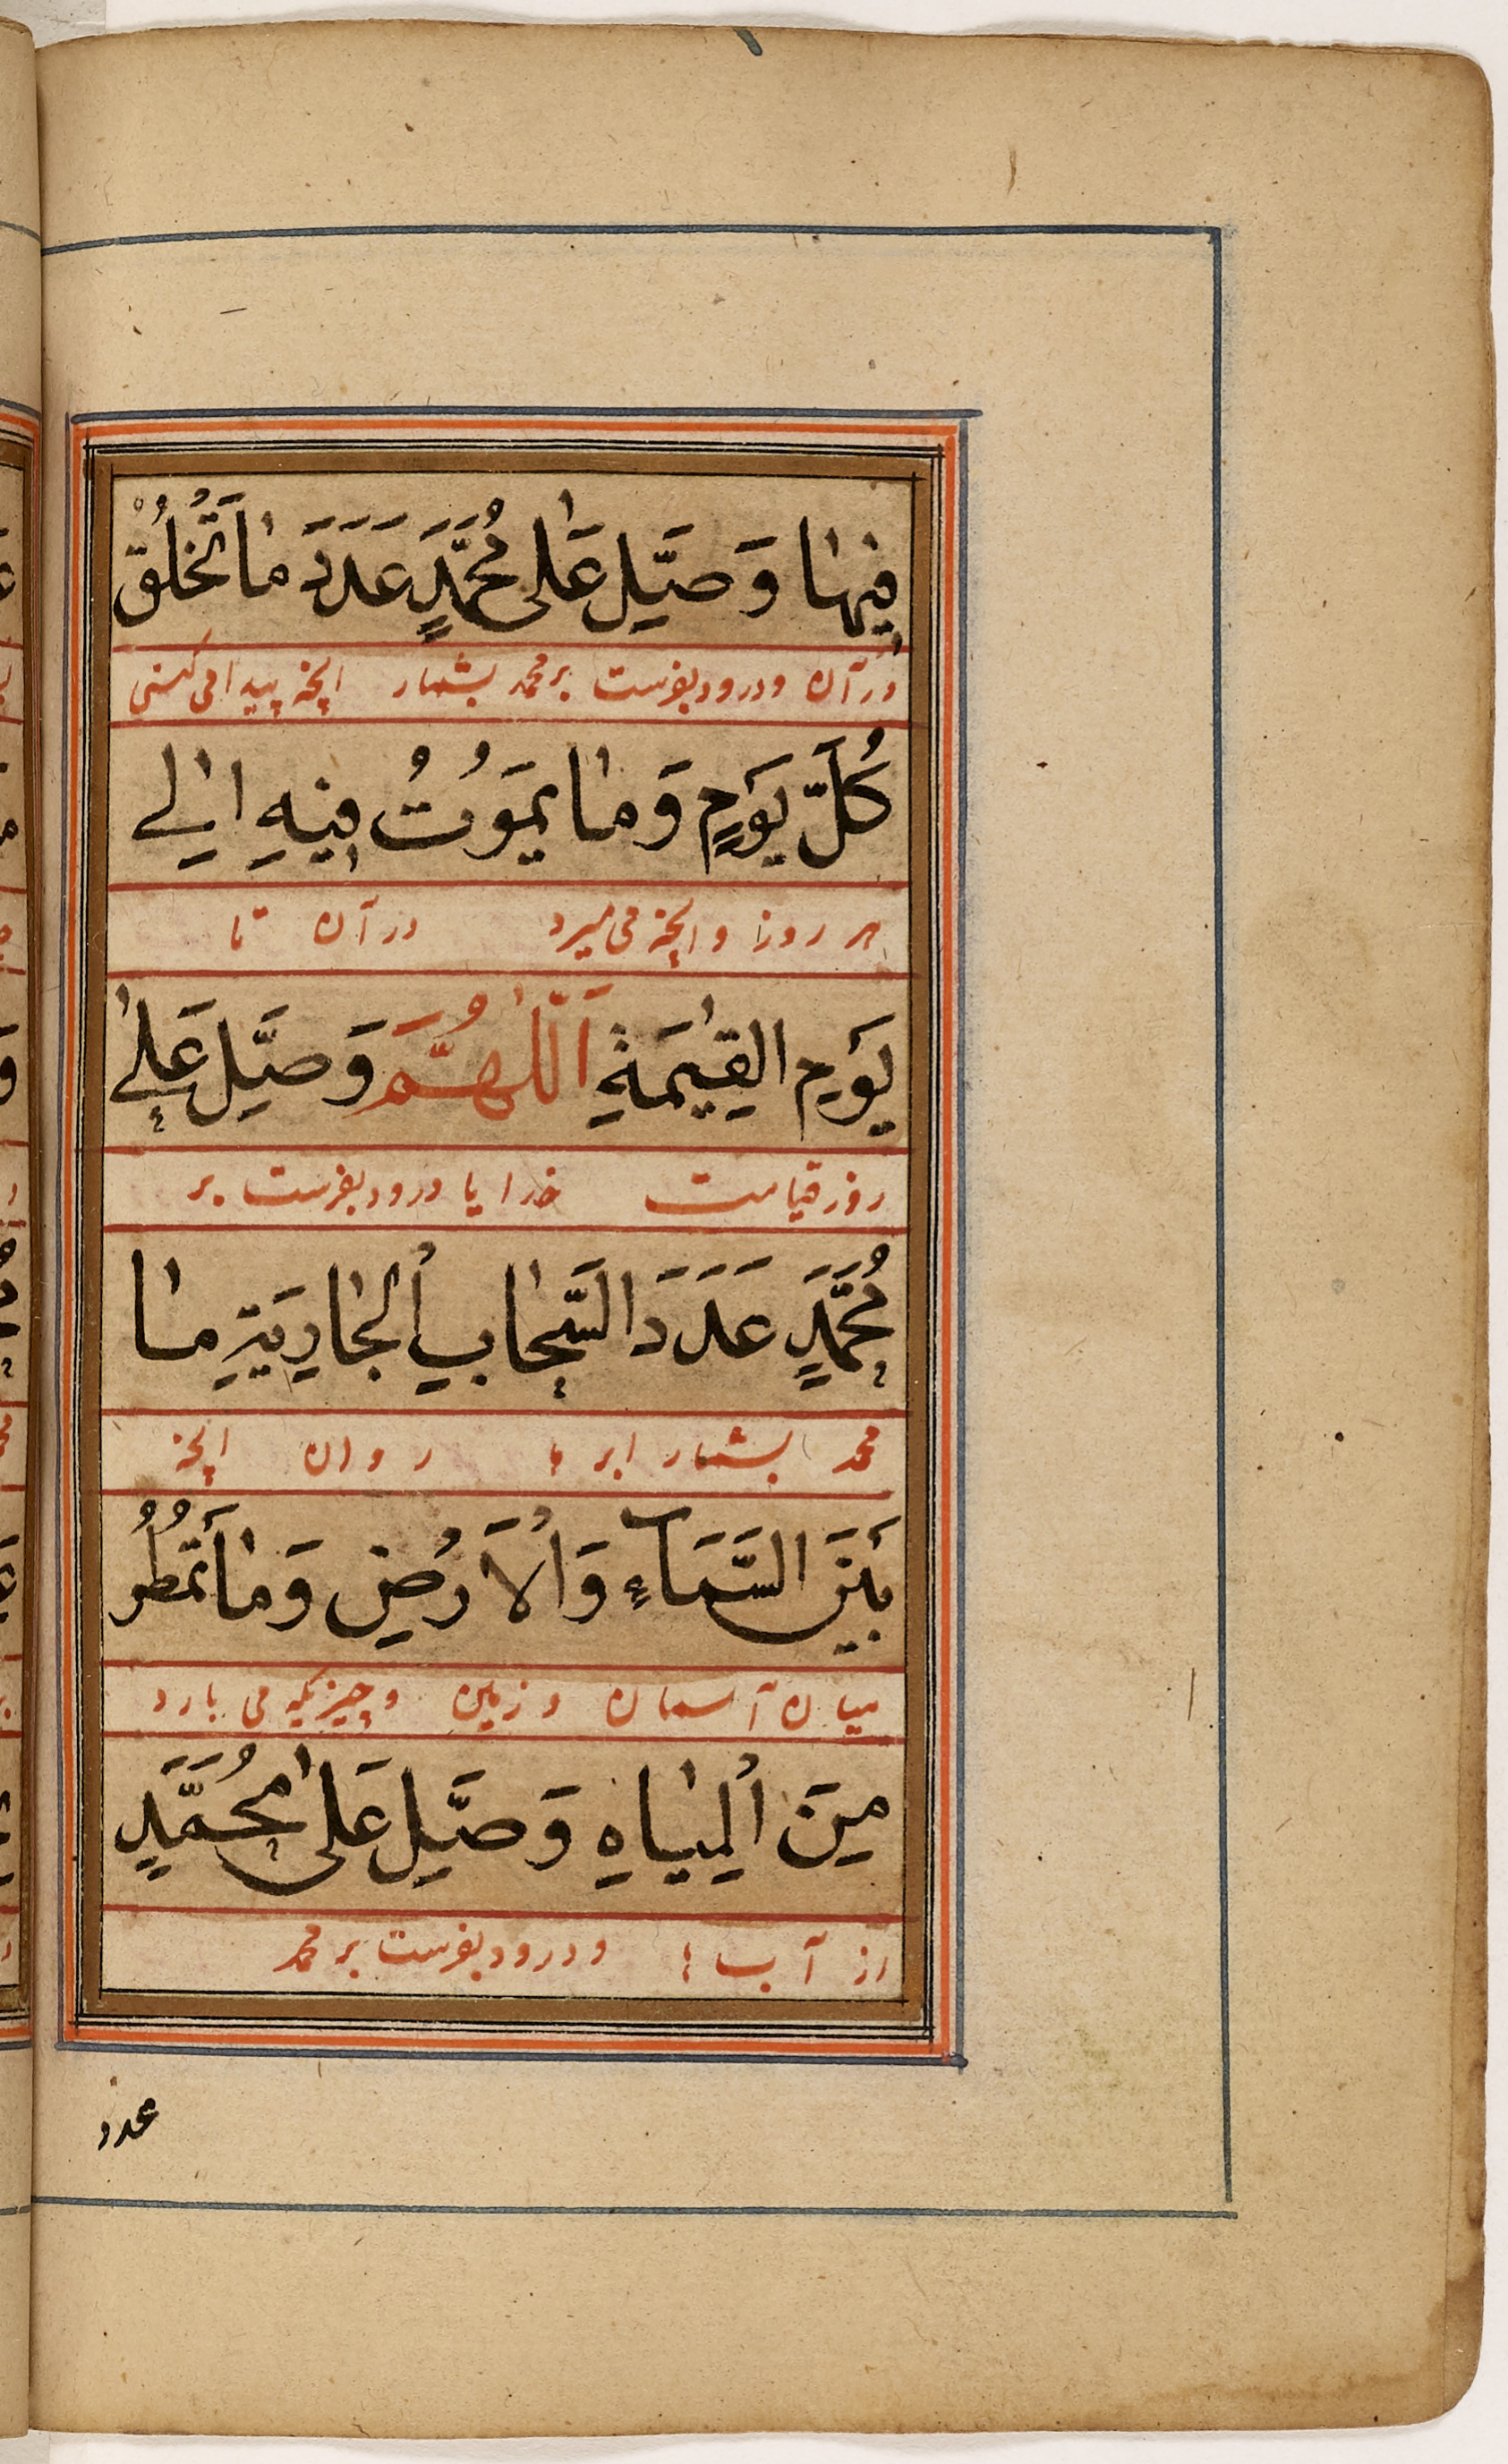 فِيهَا وَصَلِّ عَلَى مُحَمَّدٍ عَدَدَ مَا تَخْلُقُ
در آن و درود بفرست بر محمد بشمار انچه پیدا می کنی
كُلَّ يَوْمٍ وَمَا يَمُوتُ فِيهِ اِلَى
هر روز و انچه می میرد در آن تا
يَوْمِ الْقِيٰمَةِ اَللّٰهُمَّ وَصَلِّ عَلٰى
روز قیامت خدایا درود بفرست بر
مُحَمَّدٍ عَدَدَ السَّحَابِ الْجَارِيَةِ مَا
محمد بشمار ابرها روان انچه
بَيْنَ السَّمَاءِ وَالْاَرْضِ وَمَا تَمْطُرُ
میان آسمان و زمین و چیزیکه می بارد
مِنَ الْمِيَاهِ وَصَلِّ عَلَى مُحَمَّدٍ
از آب ها و درود بفرست بر محمد
عدد